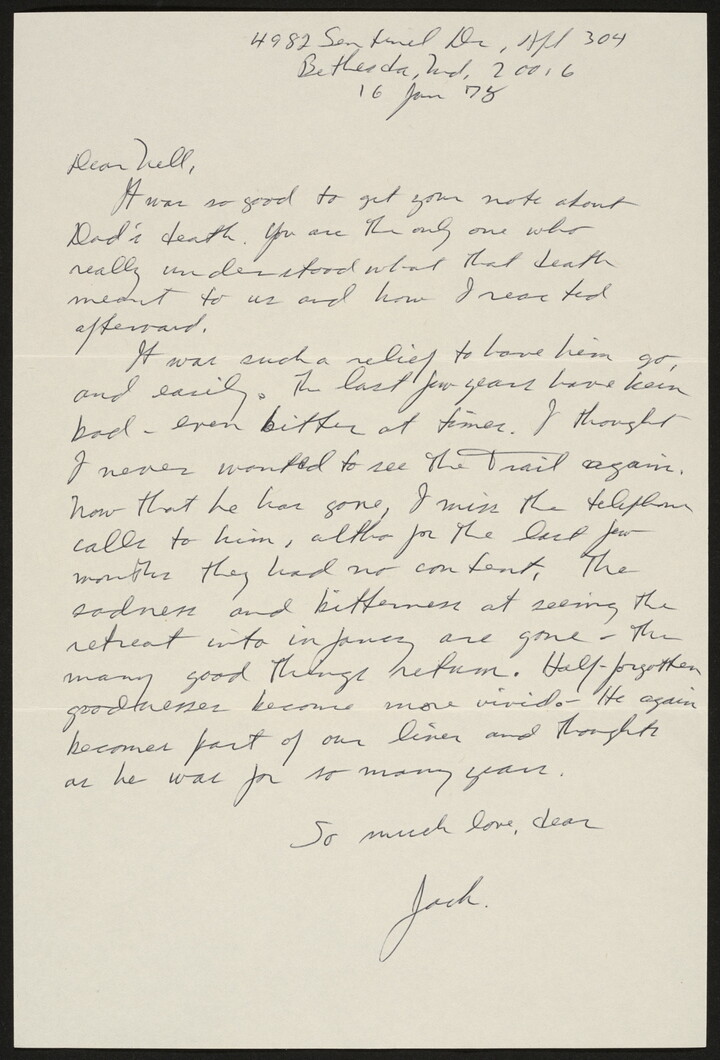 4982 Sentinel Dr, Apt 304
Bethesda, Md, 20016
16 Jan 78
Dear Nell,
It was so good to get your note about
Dad's death. You are the only one who
really understood what that death
meant to us and how I reacted
afterward.
It was such a relief to have him go,
and easily. The last few years have been
bad - even bitter at times. I thought
I never wanted to see the Trail again.
Now that he has gone, I miss the telephone
calls to him, altho for the last few
months they had no content. The
sadness and bitterness at seeing the
retreat into infancy are gone - the
many good things return. Half-forgotten
goodnesses become more vivid - He again
becomes part of our lives and thoughts
as he was for so many years.
So much love, dear
Jack.